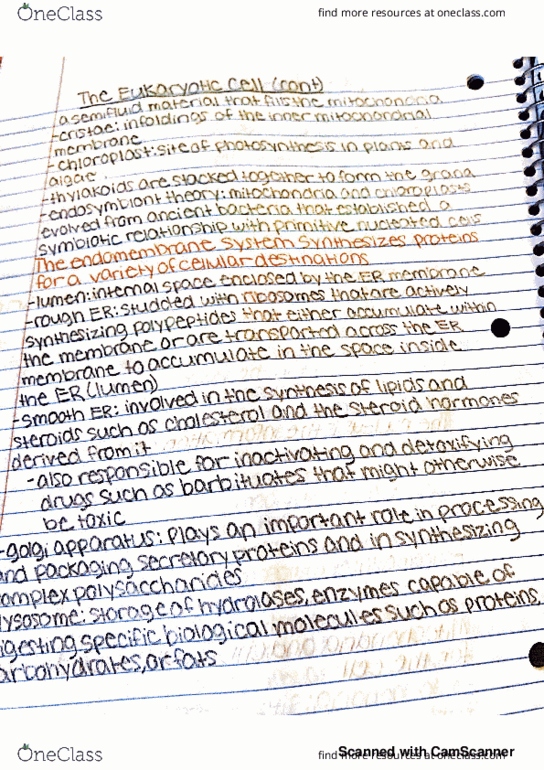 OneClass
find more resources at oneclass.com
The Eukaryotic Cell (cont)
a semifluid material that fills the mitochondria
-cristae: infoldings of the inner mitochondrial
membrane
-chloroplast: site of photosynthesis in plants and
algae
-thylakoids are stacked together to form the grana
-endosymbiont theory: mitochondria and chloroplasts
evolved from ancient bacteria that established a
symbiotic relationship with primitive nucleated cells
The endomembrane system synthesizes proteins
for a variety of cellular destinations
-lumen: internal space enclosed by the ER membrane
-rough ER: studded with ribosomes that are actively
synthesizing polypeptides that either accumulate within
the membrane or are transported across the ER
membrane to accumulate in the space inside
the ER (lumen)
-smooth ER: involved in the synthesis of lipids and
steroids such as cholesterol and the steroid hormones
derived from it
-also responsible for inactivating and detoxifying
drugs such as barbituates that might otherwise
be toxic
-golgi apparatus: plays an important role in processing
and packaging secretary proteins and in synthesizing
omplex polysaccharides
lysosome: storage of hydrolases, enzymes capable of
igesting specific biological molecules such as proteins,
arbohydrates, or fats
OneClass
find more resources at oneclass.com
Scanned with CamScanner